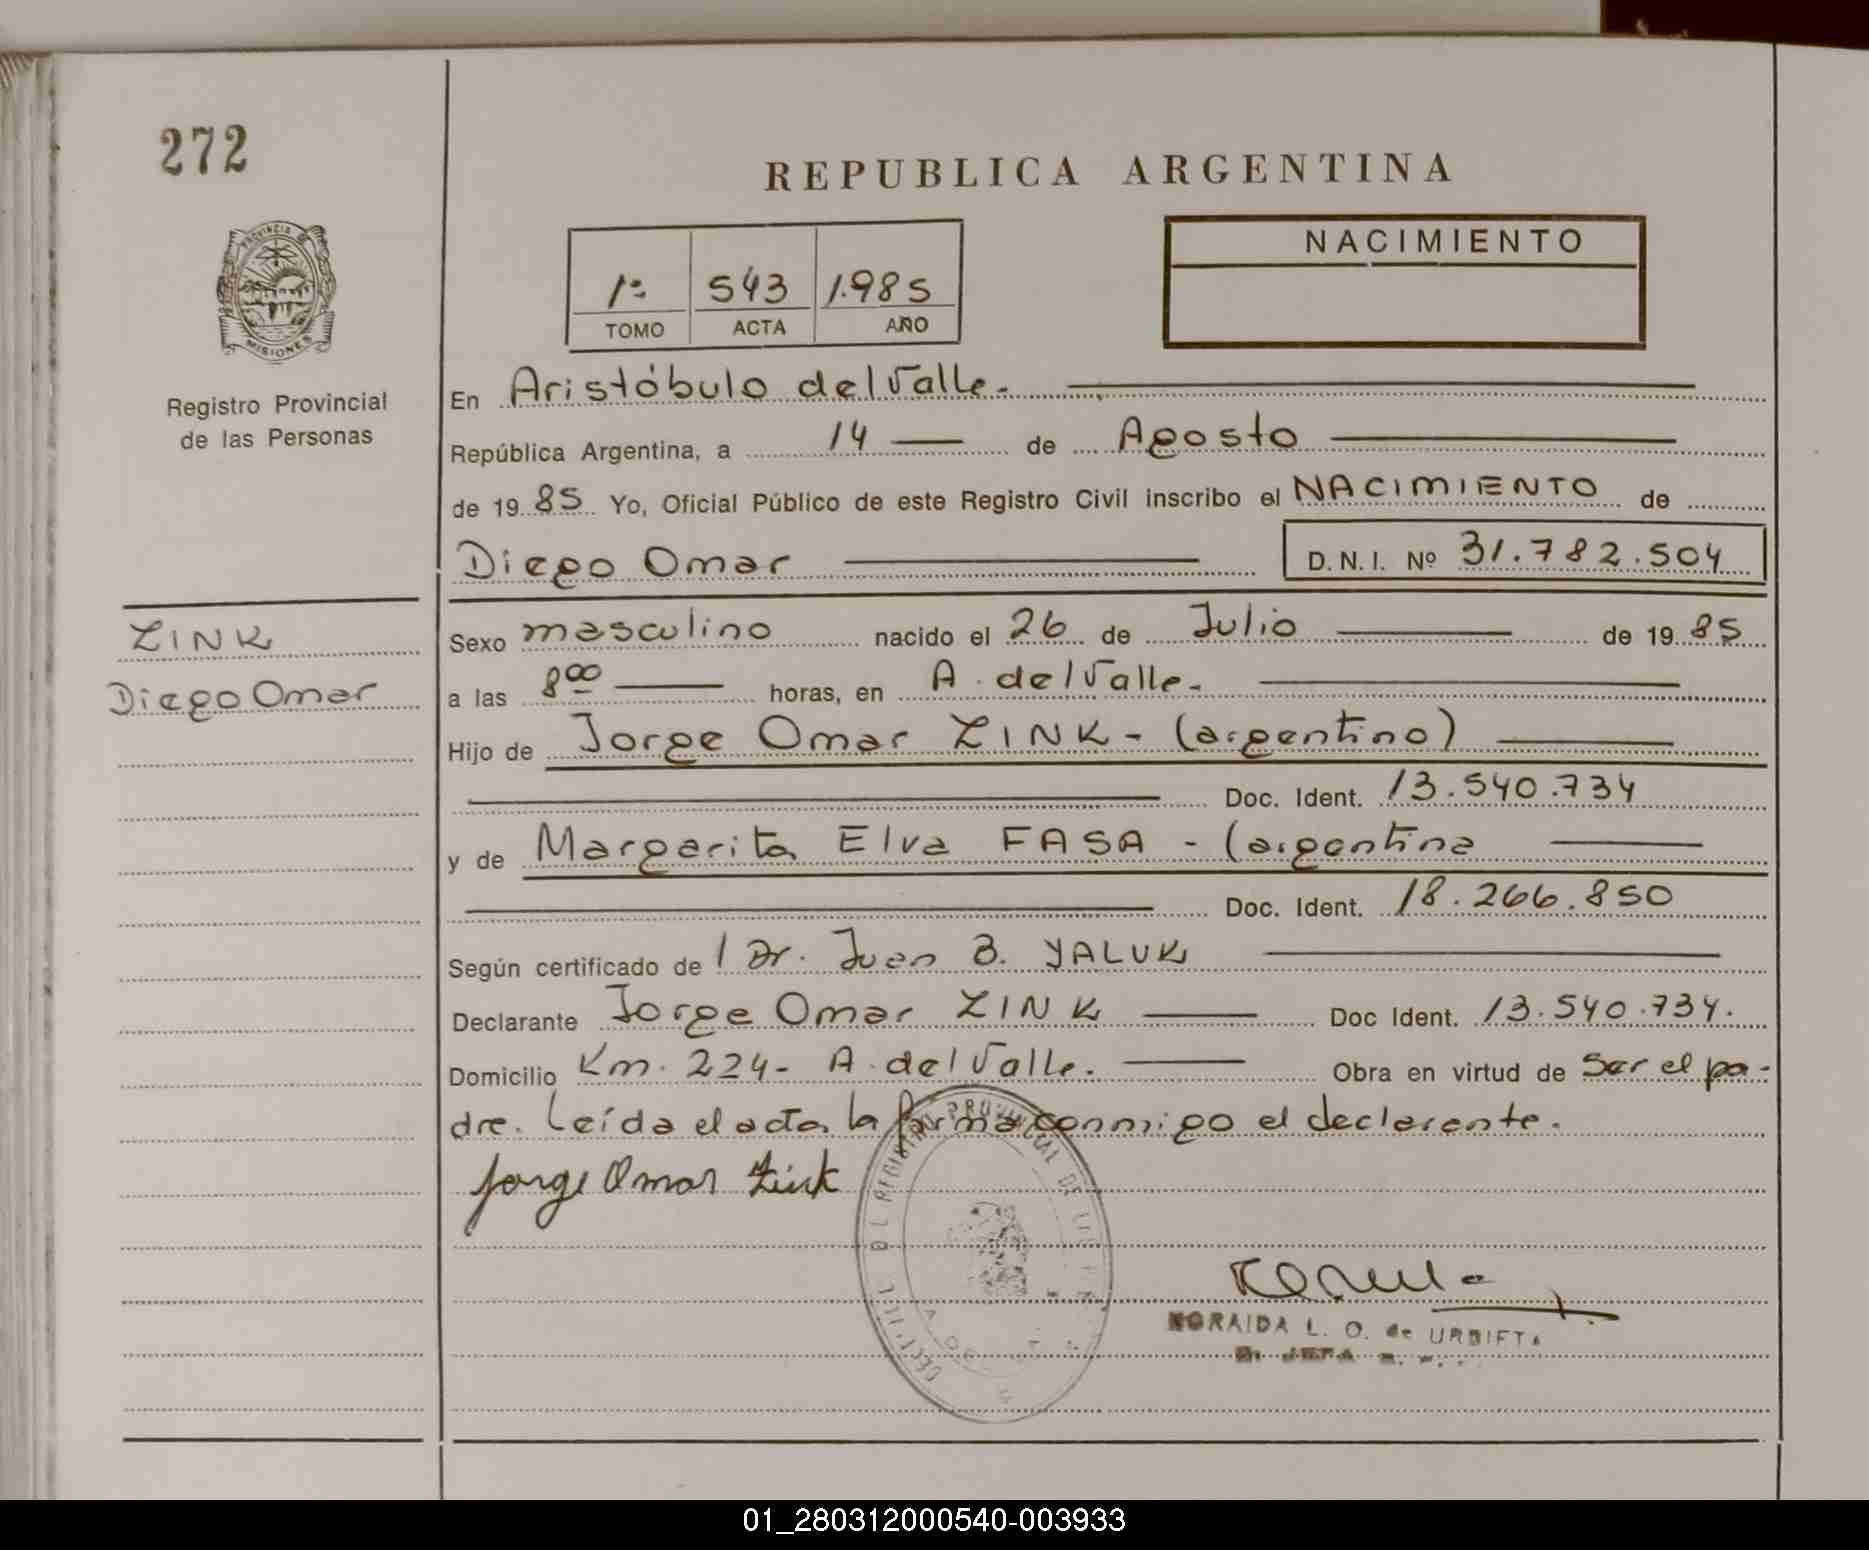 272
REPUBLICA ARGENTINA
PROVINCIA DE
MISIONES
Registro Provincial
de las Personas
1º 543 1.985
TOMO ACTA AÑO
NACIMIENTO
En Aristóbulo del Valle.
República Argentina, a 14 de Agosto
de 1985 Yo, Oficial Público de este Registro Civil inscribo el NACIMIENTO de
Diego Omar D.N.I. Nº 31.782.504
ZINK
Diego Omar
Sexo masculino nacido el 26 de Julio de 1985
a las 800 horas, en A. del Valle.
Hijo de Jorge Omar ZINK - (argentino)
Doc. Ident. 13.540.734
y de Margarita Elva FASA - (argentina
Doc. Ident. 18.266.850
Según certificado de / Dr. Juan B. YALUK
Declarante Jorge Omar ZINK Doc Ident. 13.540.734.
Domicilio Km. 224- A. del Valle. Obra en virtud de ser el pa-
dre. Leída el acta la firma conmigo el declarante.
Jorge Omar Zink
REGISTRO PROVINCIAL DE
NORAIDA L. O. de
01_280312000540-003933